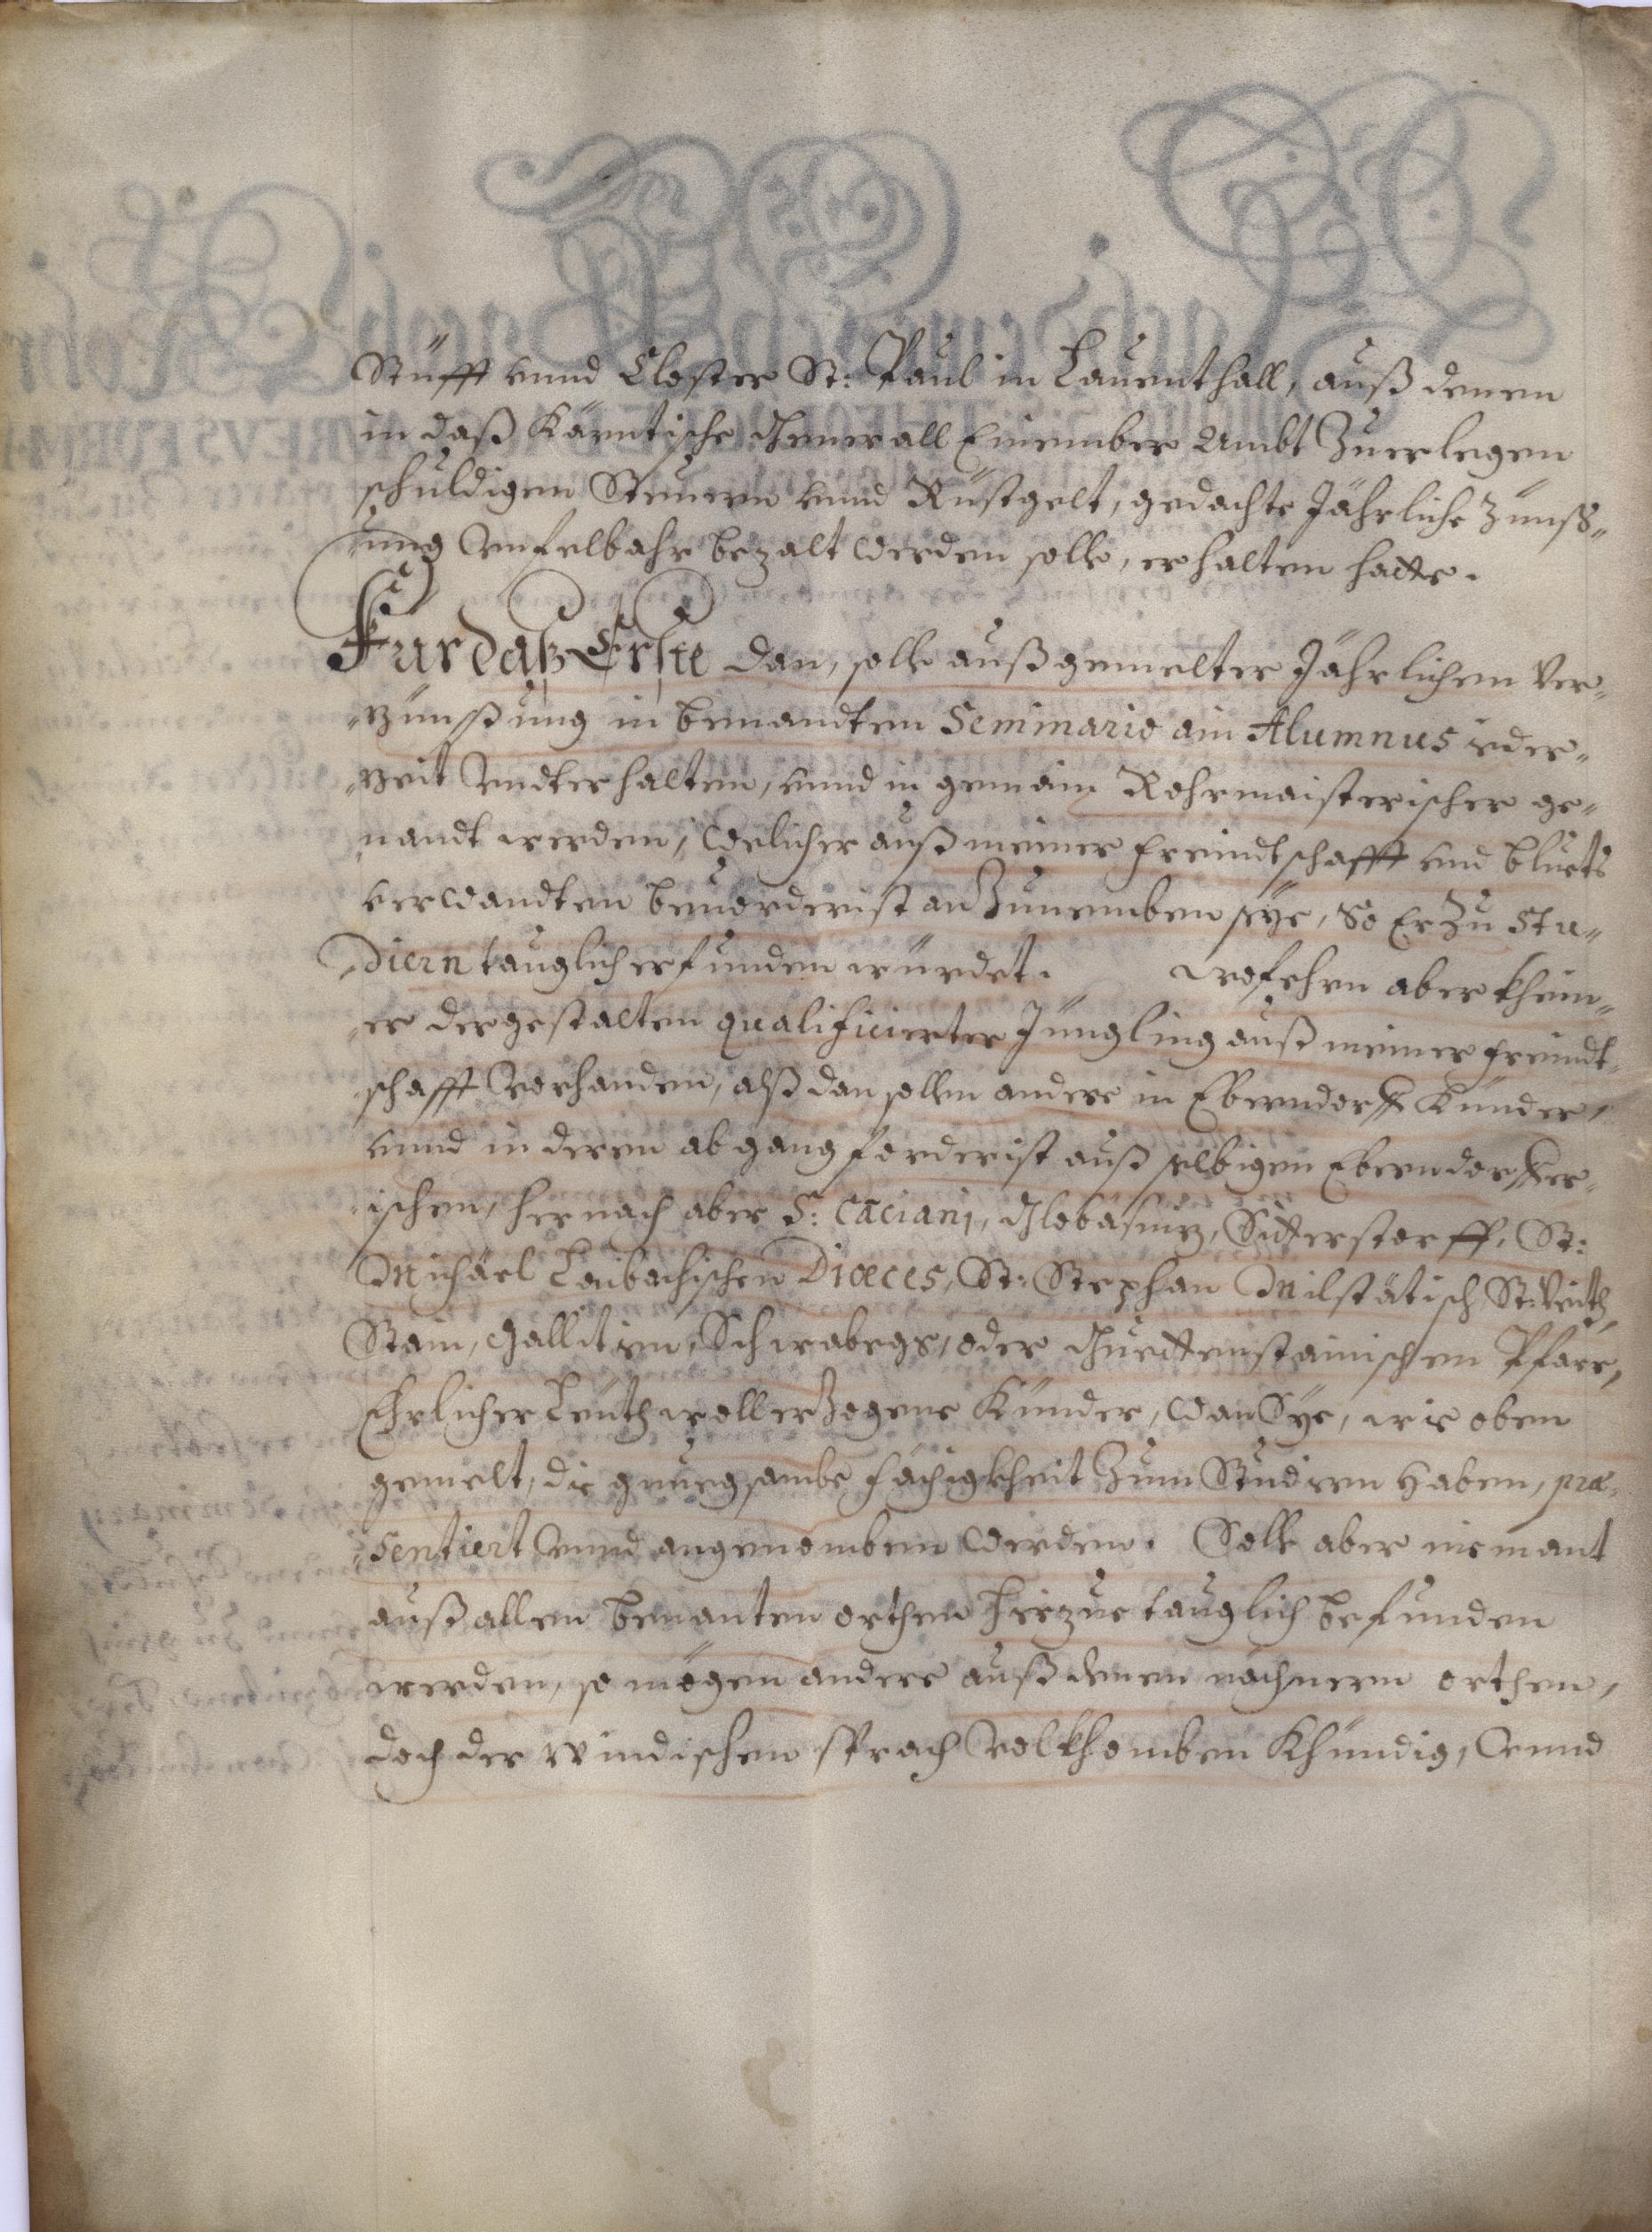 Stüfft vnnd Closter St: Paul in Lauenthall, auß denen
in daß Kärntische General Einember Ambt Zuerlegen
schuldigen Steuern vnnd Rüstgelt, gedachte Jährliche Zünß„
„ung vnfelbahr bezalt werden solle, erhalten hatte.
Für daß Erste dan, solle auß gemelter Jährlichen Ver„
„zünßung in benandtem Seminario ain Alumnus ieder„
„zeit vndterhalten, vnnd in gemain Rohrmaisterischer ge„
„nandt werden, welicher auß meiner freündtschafft vnd bluets
verwandten beuorderist an Zunemben seye, So Er Zu Stu„
„diern tauglich erfunden würdet. Wofehrn aber khein„
„er dergestalten qualificierter Jüngling auß meiner freündt„
„schafft vorhanden, alß dan sollen andere in Eberndorff Künder,
vnnd in deren abgang forderist auß selbigen Eberndorffer„
„ischen, hernach aber S: Caciani, Globasniz, Sitterstorff, St:
Michäel Laibachischen Diœces, St: Stephan Milstätisch, St: Veith,
Stain, Gallitien, Schwabegg, oder Guettenstainischen Pfarr,
Ehrlicher Leüth woll erzogene Künder, wan Sye, wie oben
gemelt, die gnuegsambe fächigkheit Zum Studiern haben, præ„
„sentiert vnnd angenomben werden. Solle aber niemant
auß allen benanten orthen hierzue tauglich befunden
werden, so mögen andere auß denen nächnern orthen,
doch der windischen sprach volkhomben khündig, vnnd